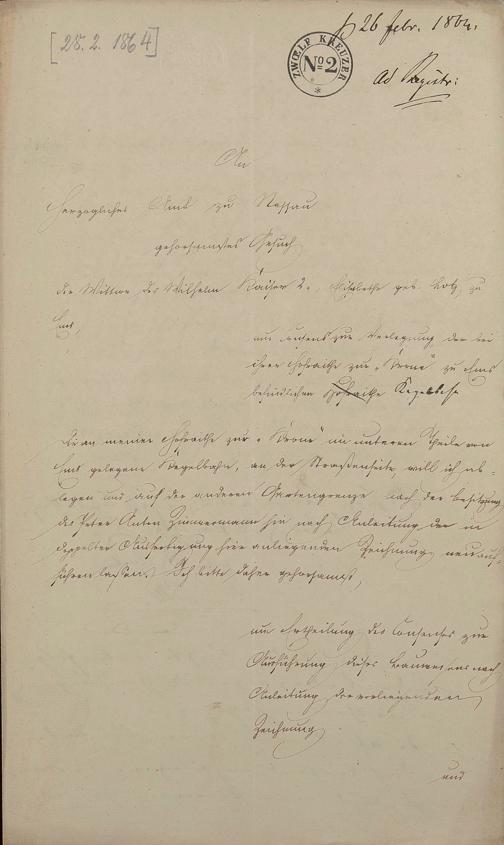 [25. 2. 1864]
26 febr. 1864.
ZWŒLF KREUZER
No 2
ad Registr:
An
Herzogliches Amt zu Nassau
gehorsamstes Gesuch
der Wittwe des Wilhelm Kaiser 2r, Elisabethe geb. Lotz zu
Ems,
um Consens zur Verlegung der bei
ihrer Hofraithe zur „Krone" zu Ems
befindlichen Hofraithe Kegelbahn
Die an meiner Hofraithe zur „Krone" im unteren Theile von
Ems gelegene Kegelbahn, an der Straßenseite, will ich ab-
legen und auf der anderen Gartengrenze nach der Besitzung
des Peter Anton Zimmermann hin nach Anleitung der in
doppelter Ausfertigung hier anliegenden Zeichnung neu auf-
führen lassen. Ich bitte daher gehorsamst,
um Ertheilung des Consenses zur
Ausführung dieses Bauwesens nach
Anleitung der vorliegenden
Zeichnung
und